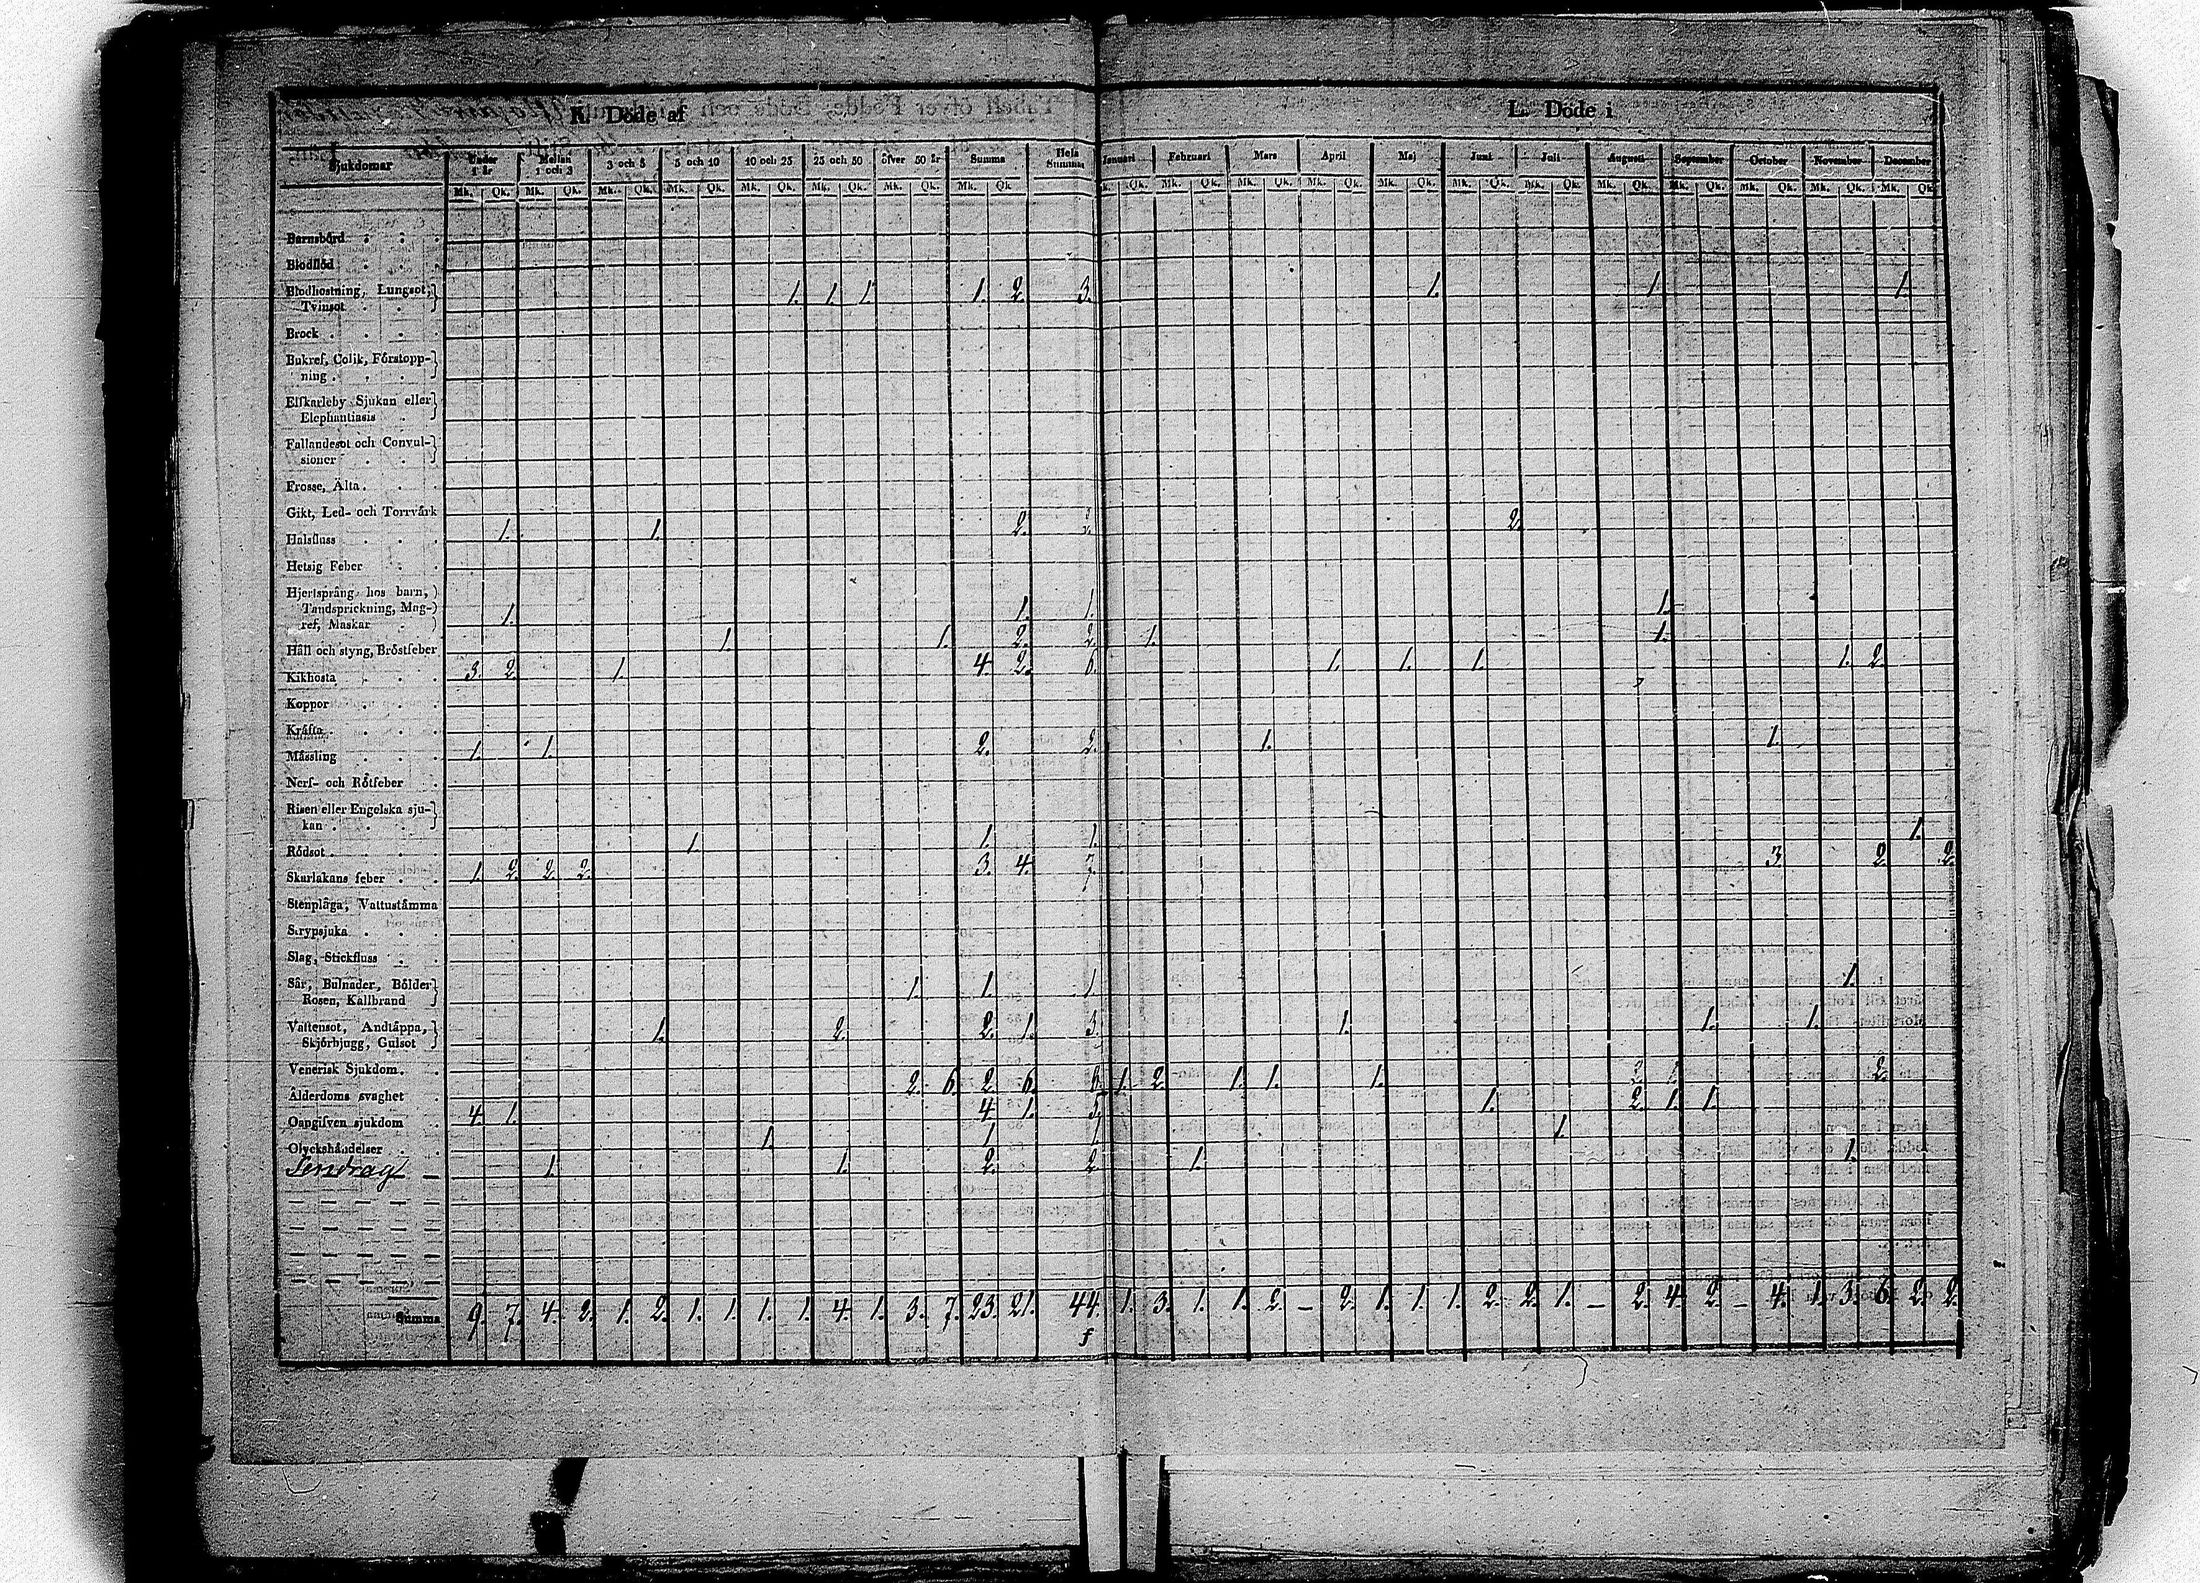 K. Döde af
L. Döde i
Sjukdomar Under 1 år Mellan 1 och 3 3 och 5 5 och 10 10 och 25 25 och 50 öfver 50 år Summa Hela Summa Januari Februari Mars April Maj Juni Juli Augusti September October November December
Mk. Qk. Mk. Qk. Mk. Qk. Mk. Qk. Mk. Qk. Mk. Qk. Mk. Qk. Mk. Qk. Qk. Mk. Qk. Mk. Qk. Mk. Qk. Mk. Qk. Mk. Qk. Mk. Qk. Mk. Qk. Mk. Qk. Mk. Qk. Mk. Qk. Mk. Qk.
Barnsbörd
Blodflöd
Blodhostning, Lungsot,
Tvinsot 1. 1. 1. 1. 2. 3. 1. 1. 1.
Brock
Bukref, Colik, Förstopp-
ning
Elfkarleby Sjukan eller
Elephantiasis
Fallandesot och Convul-
sioner
Frosse, Älta
Gikt, Led- och Torrvärk
Halsfluss 1. 1. 2. 2. 2.
Hetsig Feber
Hjertsprång hos barn,
Tandsprickning, Mag-
ref, Maskar 1. 1. 1. 1.
Håll och styng, Bröstfeber 1. 1. 2. 2. 1. 1.
Kikhosta 3. 2. 1. 4. 2. 6. 1. 1. 1. 1. 2.
Koppor
Kräfta
Mässling 1. 1. 2. 2. 1. 1.
Nerf- och Rötfeber
Risen eller Engelska sju-
kan
Rödsot 1. 1. 1. 1.
Skarlakans feber 1. 2. 2. 2. 3. 4. 7. 3. 2. 2.
Stenplåga, Vattustämma
Strypsjuka
Slag, Stickfluss
Sår, Bulnader, Bölder
Rosen, Kallbrand 1. 1. 1 1.
Vattensot, Andtäppa,
Skjörbjugg, Gulsot 1. 2. 2. 1. 3. 1. 1. 1.
Venerisk Sjukdom
Ålderdoms svaghet 2. 6. 2. 6. 8. 1. 2. 1. 1. 1. 2.
Oapgifven sjukdom 4. 1. 4. 1. 5. 1. 2. 1. 1.
Olyckshändelser 1. 1. 1. 1.
Sendrag 1. 1. 2. 2. 1. 1.
Summa 9. 7. 4. 2. 1. 2. 1. 1. 1. 1. 4. 1. 3. 7. 23. 21. 44. 1. 3. 1. 1. 2. – 2. 1. 1. 1. 2. 2. 1. – 2. 4. 2. – 4. 1. 3. 6. 2. 2.